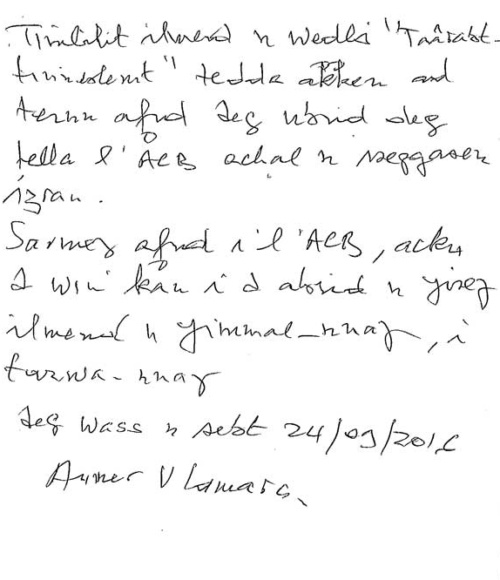 Timlilit ilmend n wedlis "Taârabt-
tinneslemt" tedda akken ard
ternu afud deg ubrid deg
tella l'ACB achal n iseggasen
izran.
Sarmeɣ afud i l'ACB, acku
d win kân i d abrid n yiseɣ
ilmend n yimmal-nnaɣ, i
tarwa-nnaɣ
deg wass n sebt 24/09/2016
Aumer U Lamara.